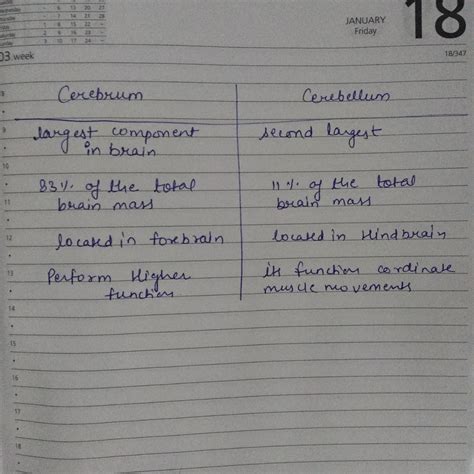 JANUARY 18
Friday
03 week 18/347
Cerebrum Cerebellum
largest component second largest
in brain
83% of the total 11% of the total
brain mass brain mass
located in forebrain located in Hindbrain
Perform Higher its function cordinate
function muscle movements
9
10
11
12
13
14
15
16
17
18